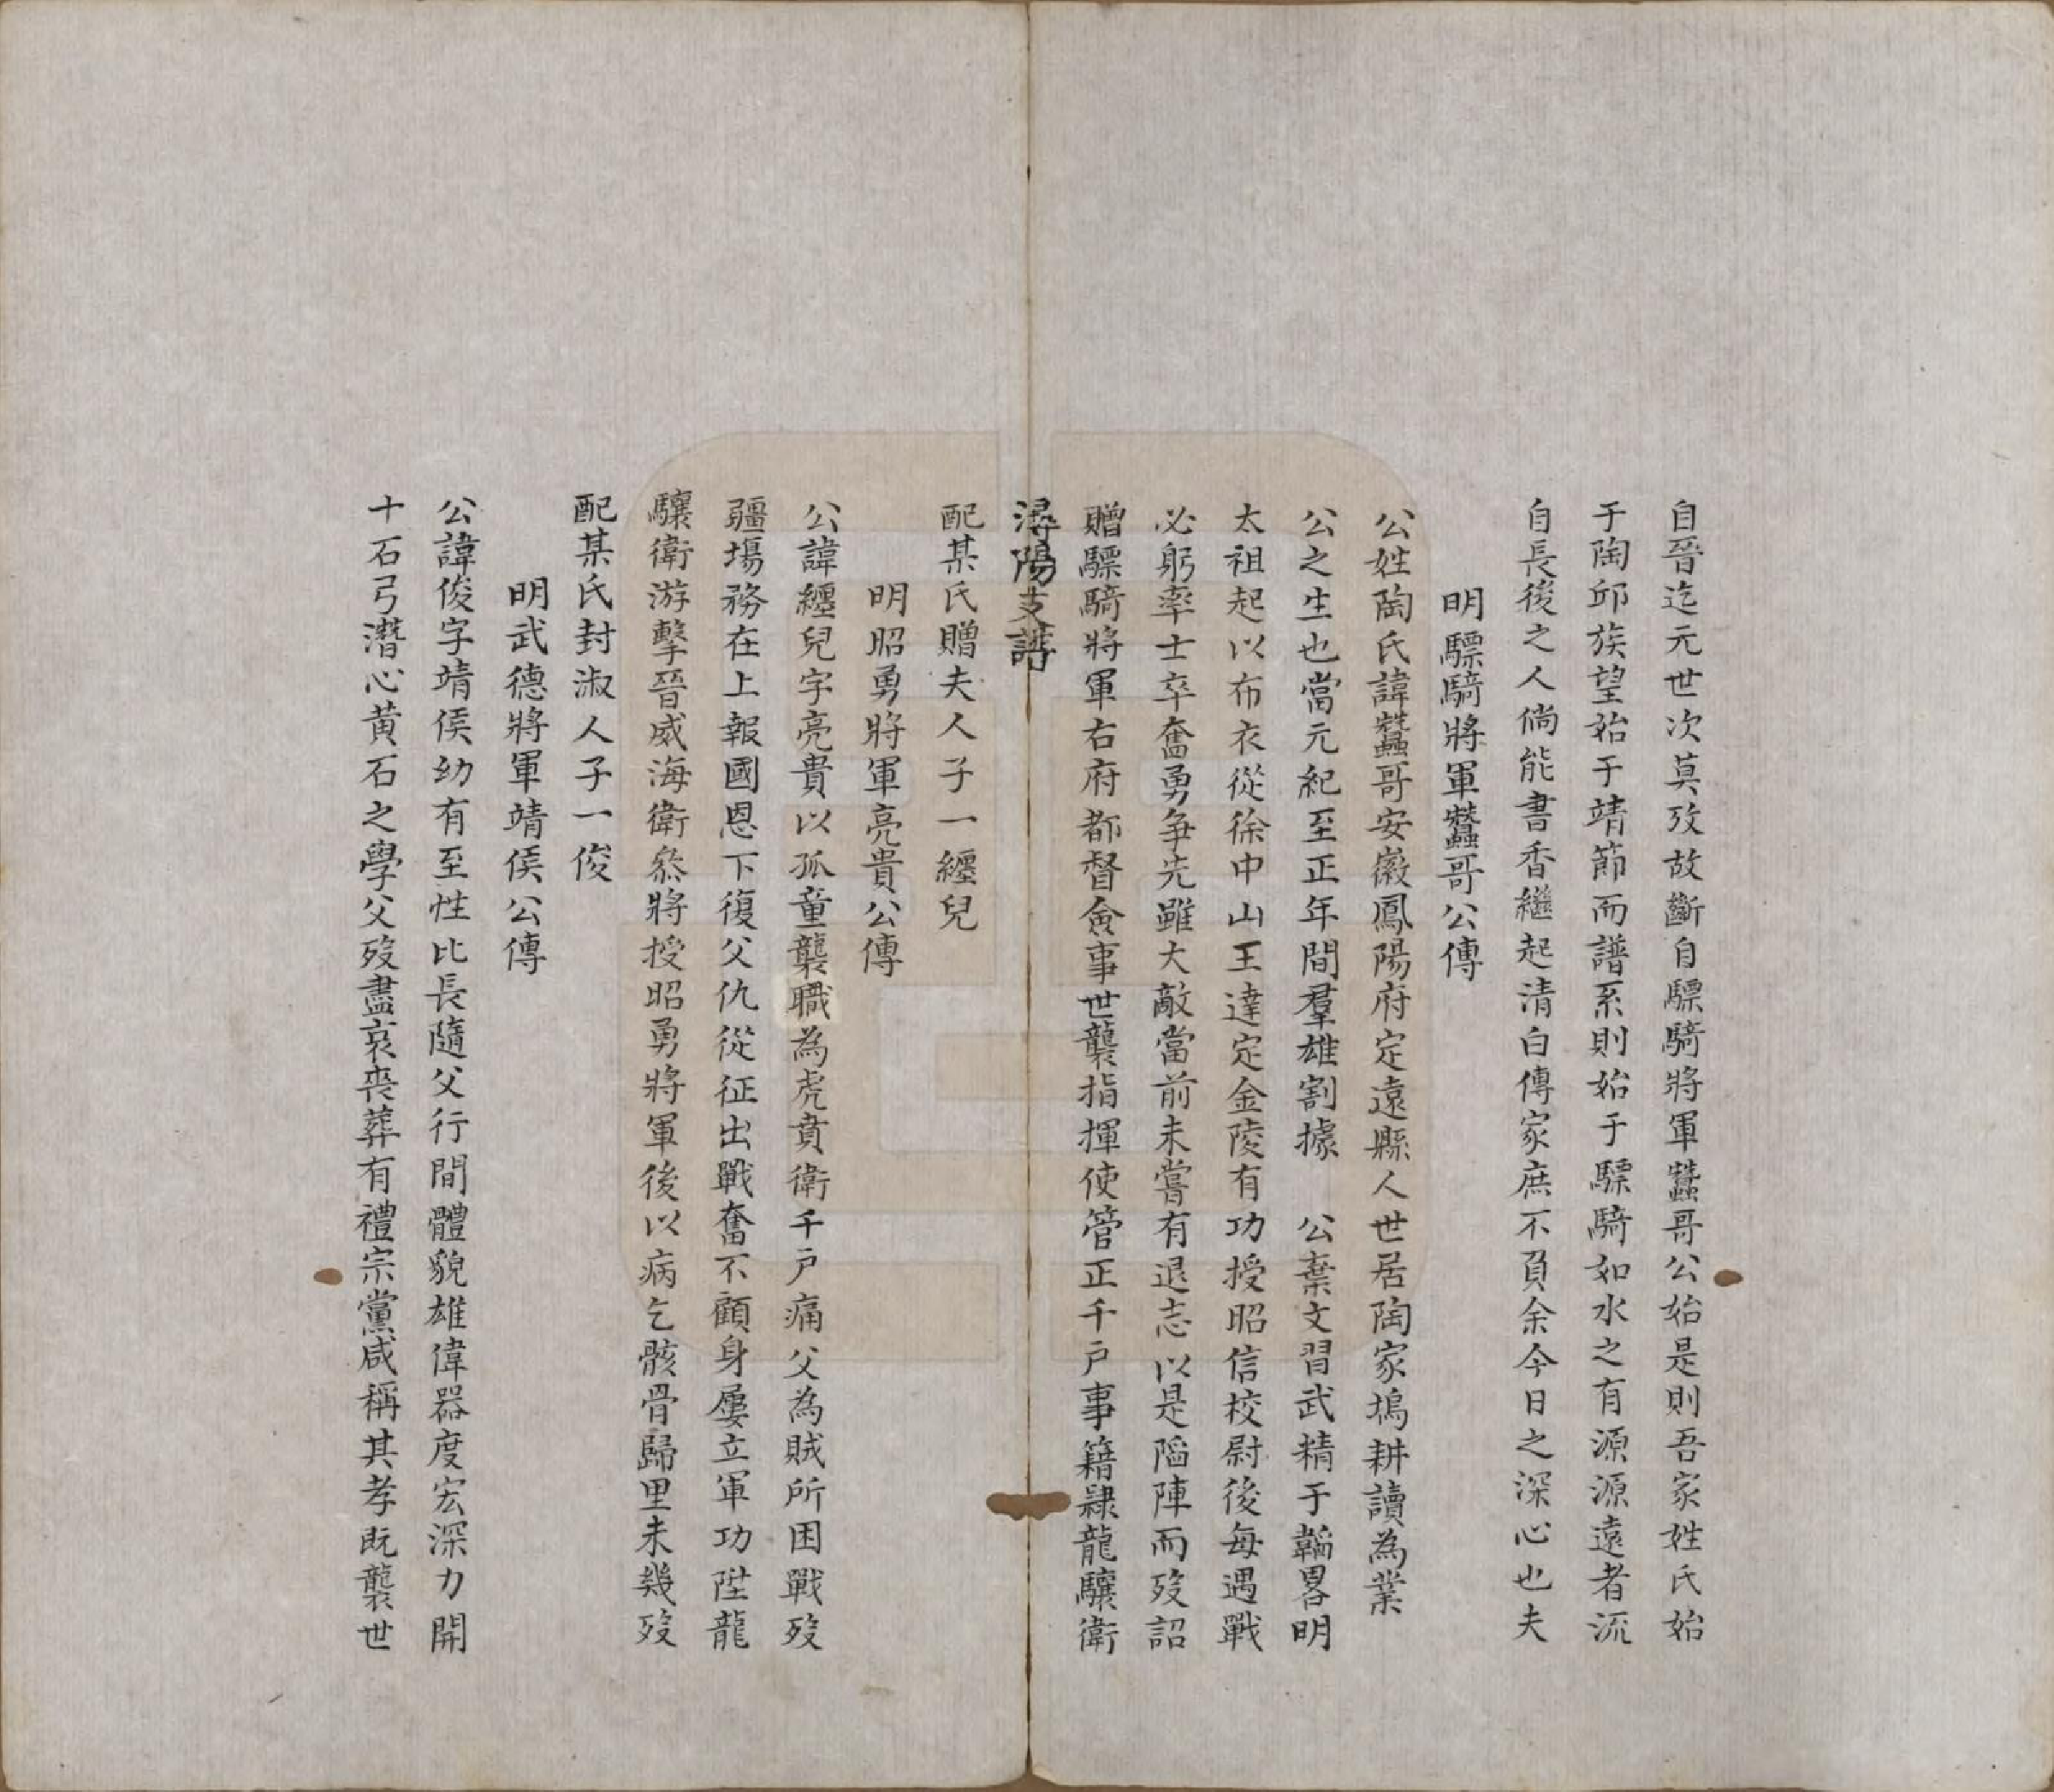 自晉迄元世次莫攷故斷自驃騎將軍蠶哥公始是則吾家姓氏始
于陶邱族望始于靖節而譜系則始于驃騎如水之有源源遠者流
自長後之人倘能書香繼起清白傳家庶不負余今日之深心也夫
明驃騎將軍蠶哥公傳
公姓陶氏諱蠶哥安徽鳳陽府定遠縣人世居陶家塢耕讀為業
公之生也當元紀至正年間羣雄割據　公棄文習武精于韜畧明
太祖起以布衣從徐中山王達定金陵有功授昭信校尉後每遇戰
必躬率士卒奮勇争先雖大敵當前未嘗有退志以是陷陣而歿詔
贈驃騎將軍右府都督僉事世襲指揮使管正千戶事籍隷龍驤衛
潯陽支譜
配某氏贈夫人子一纏兒
明昭勇將軍亮貴公傳
公諱纏兒字亮貴以孤童襲職為虎賁衛千戶痛父為賊所困戰歿
疆塲務在上報國恩下復父仇從征出戰奮不顧身屢立軍功陞龍
驤衛游擊晉威海衛叅將授昭勇將軍後以病乞骸骨歸里未幾歿
配某氏封淑人子一俊
明武德將軍靖侯公傳
公諱俊字靖侯幼有至性比長隨父行間體貌雄偉器度宏深力開
十石弓潛心黄石之學父歿盡哀喪葬有禮宗黨咸稱其孝既襲世